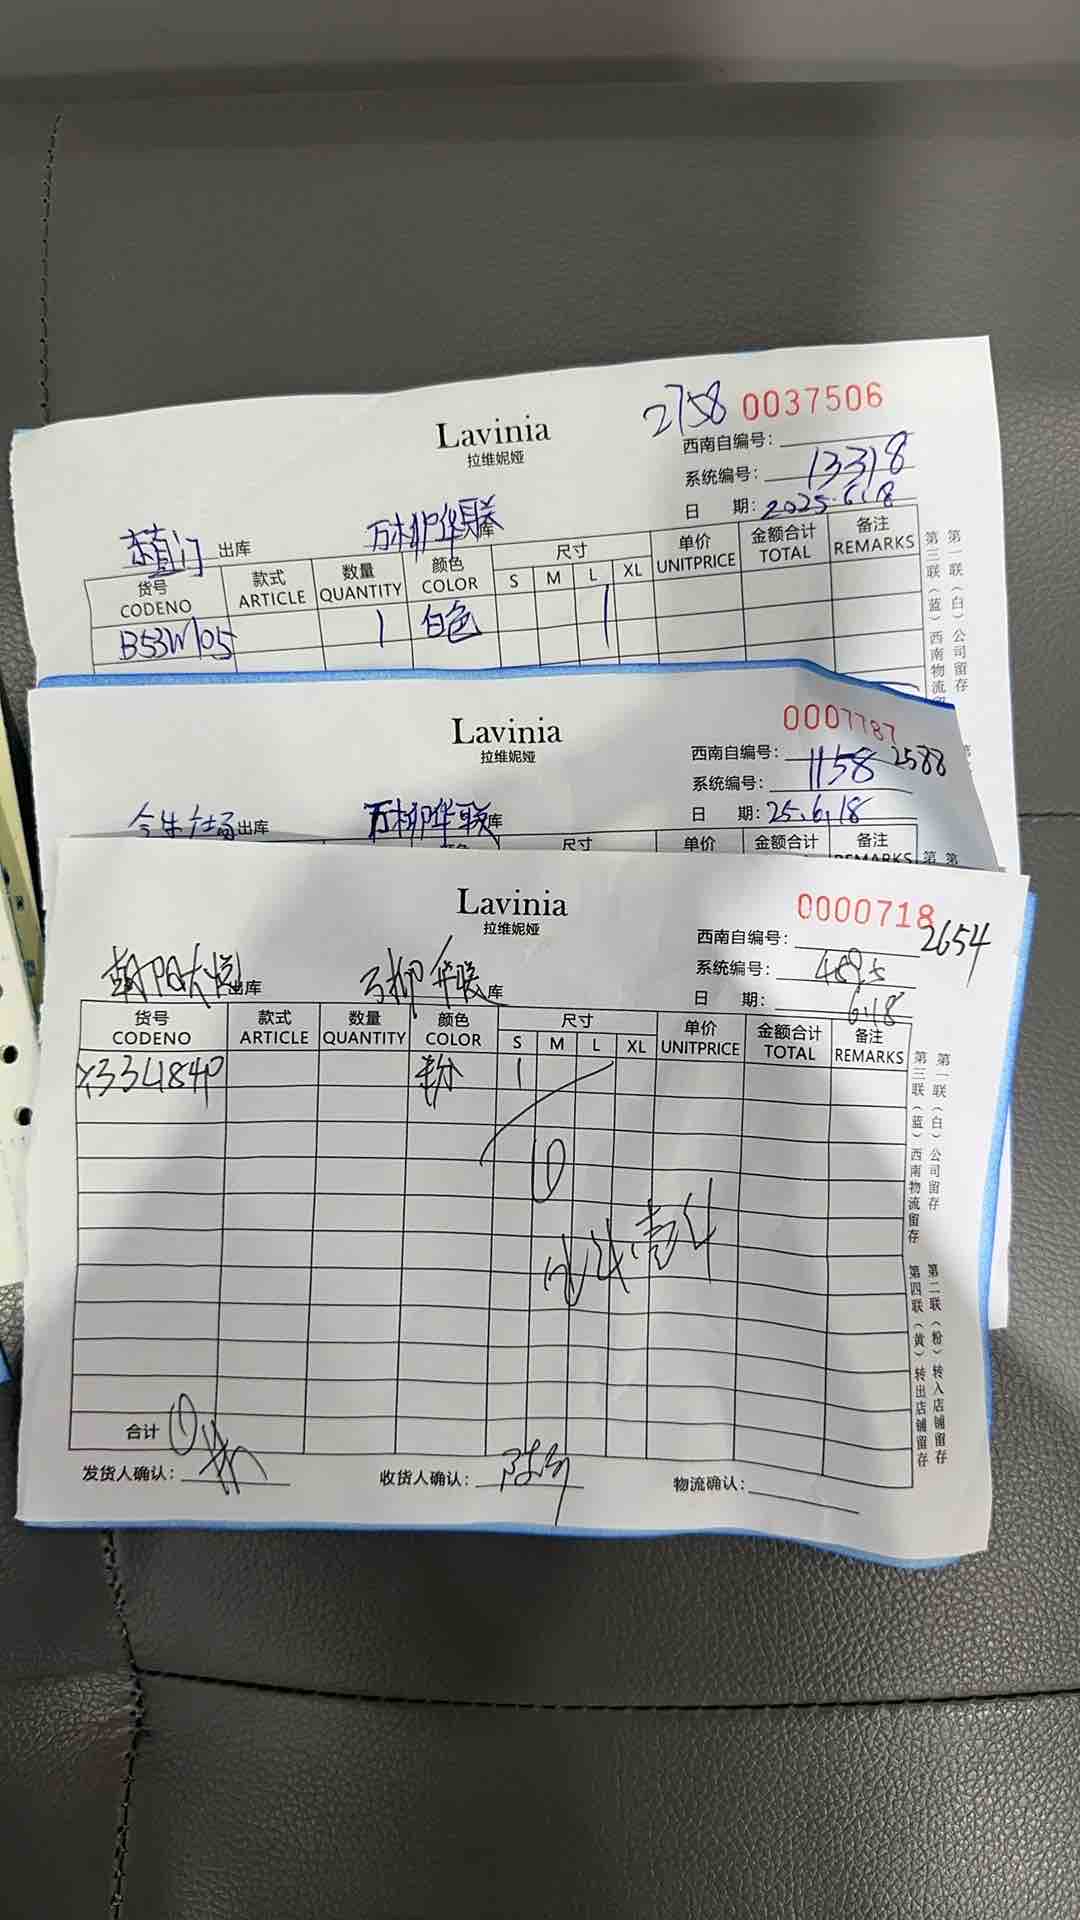 Lavinia
拉维妮娅
2758 0037506
西南自编号:
系统编号: 13318
日 期: 2025.6.18
东直门 出库 万柳华联 库
货号 款式 数量 颜色 尺寸 单价 金额合计 备注
CODENO ARTICLE QUANTITY COLOR S M L XL UNITPRICE TOTAL REMARKS
B53W105 1 白色 1
第一联(白)公司留存
第三联(蓝)西南物流留
Lavinia
拉维妮娅
0007787
西南自编号: 2588
系统编号: 1158
日 期: 25.6.18
出库 万柳华联 库
尺寸 单价 金额合计 备注
REMARKS
第 第
Lavinia
拉维妮娅
0000718
西南自编号: 2654
系统编号: 4595
日 期: 6.18
朝阳大悦 出库 万柳华联 库
货号 款式 数量 颜色 尺寸 单价 金额合计 备注
CODENO ARTICLE QUANTITY COLOR S M L XL UNITPRICE TOTAL REMARKS
Y33L184P 粉 1
①
壹件
合计 ①
发货人确认: 收货人确认: 物流确认:
第一联(白)公司留存
第三联(蓝)西南物流留存
第二联(粉)转入店铺留存
第四联(黄)转出店铺留存